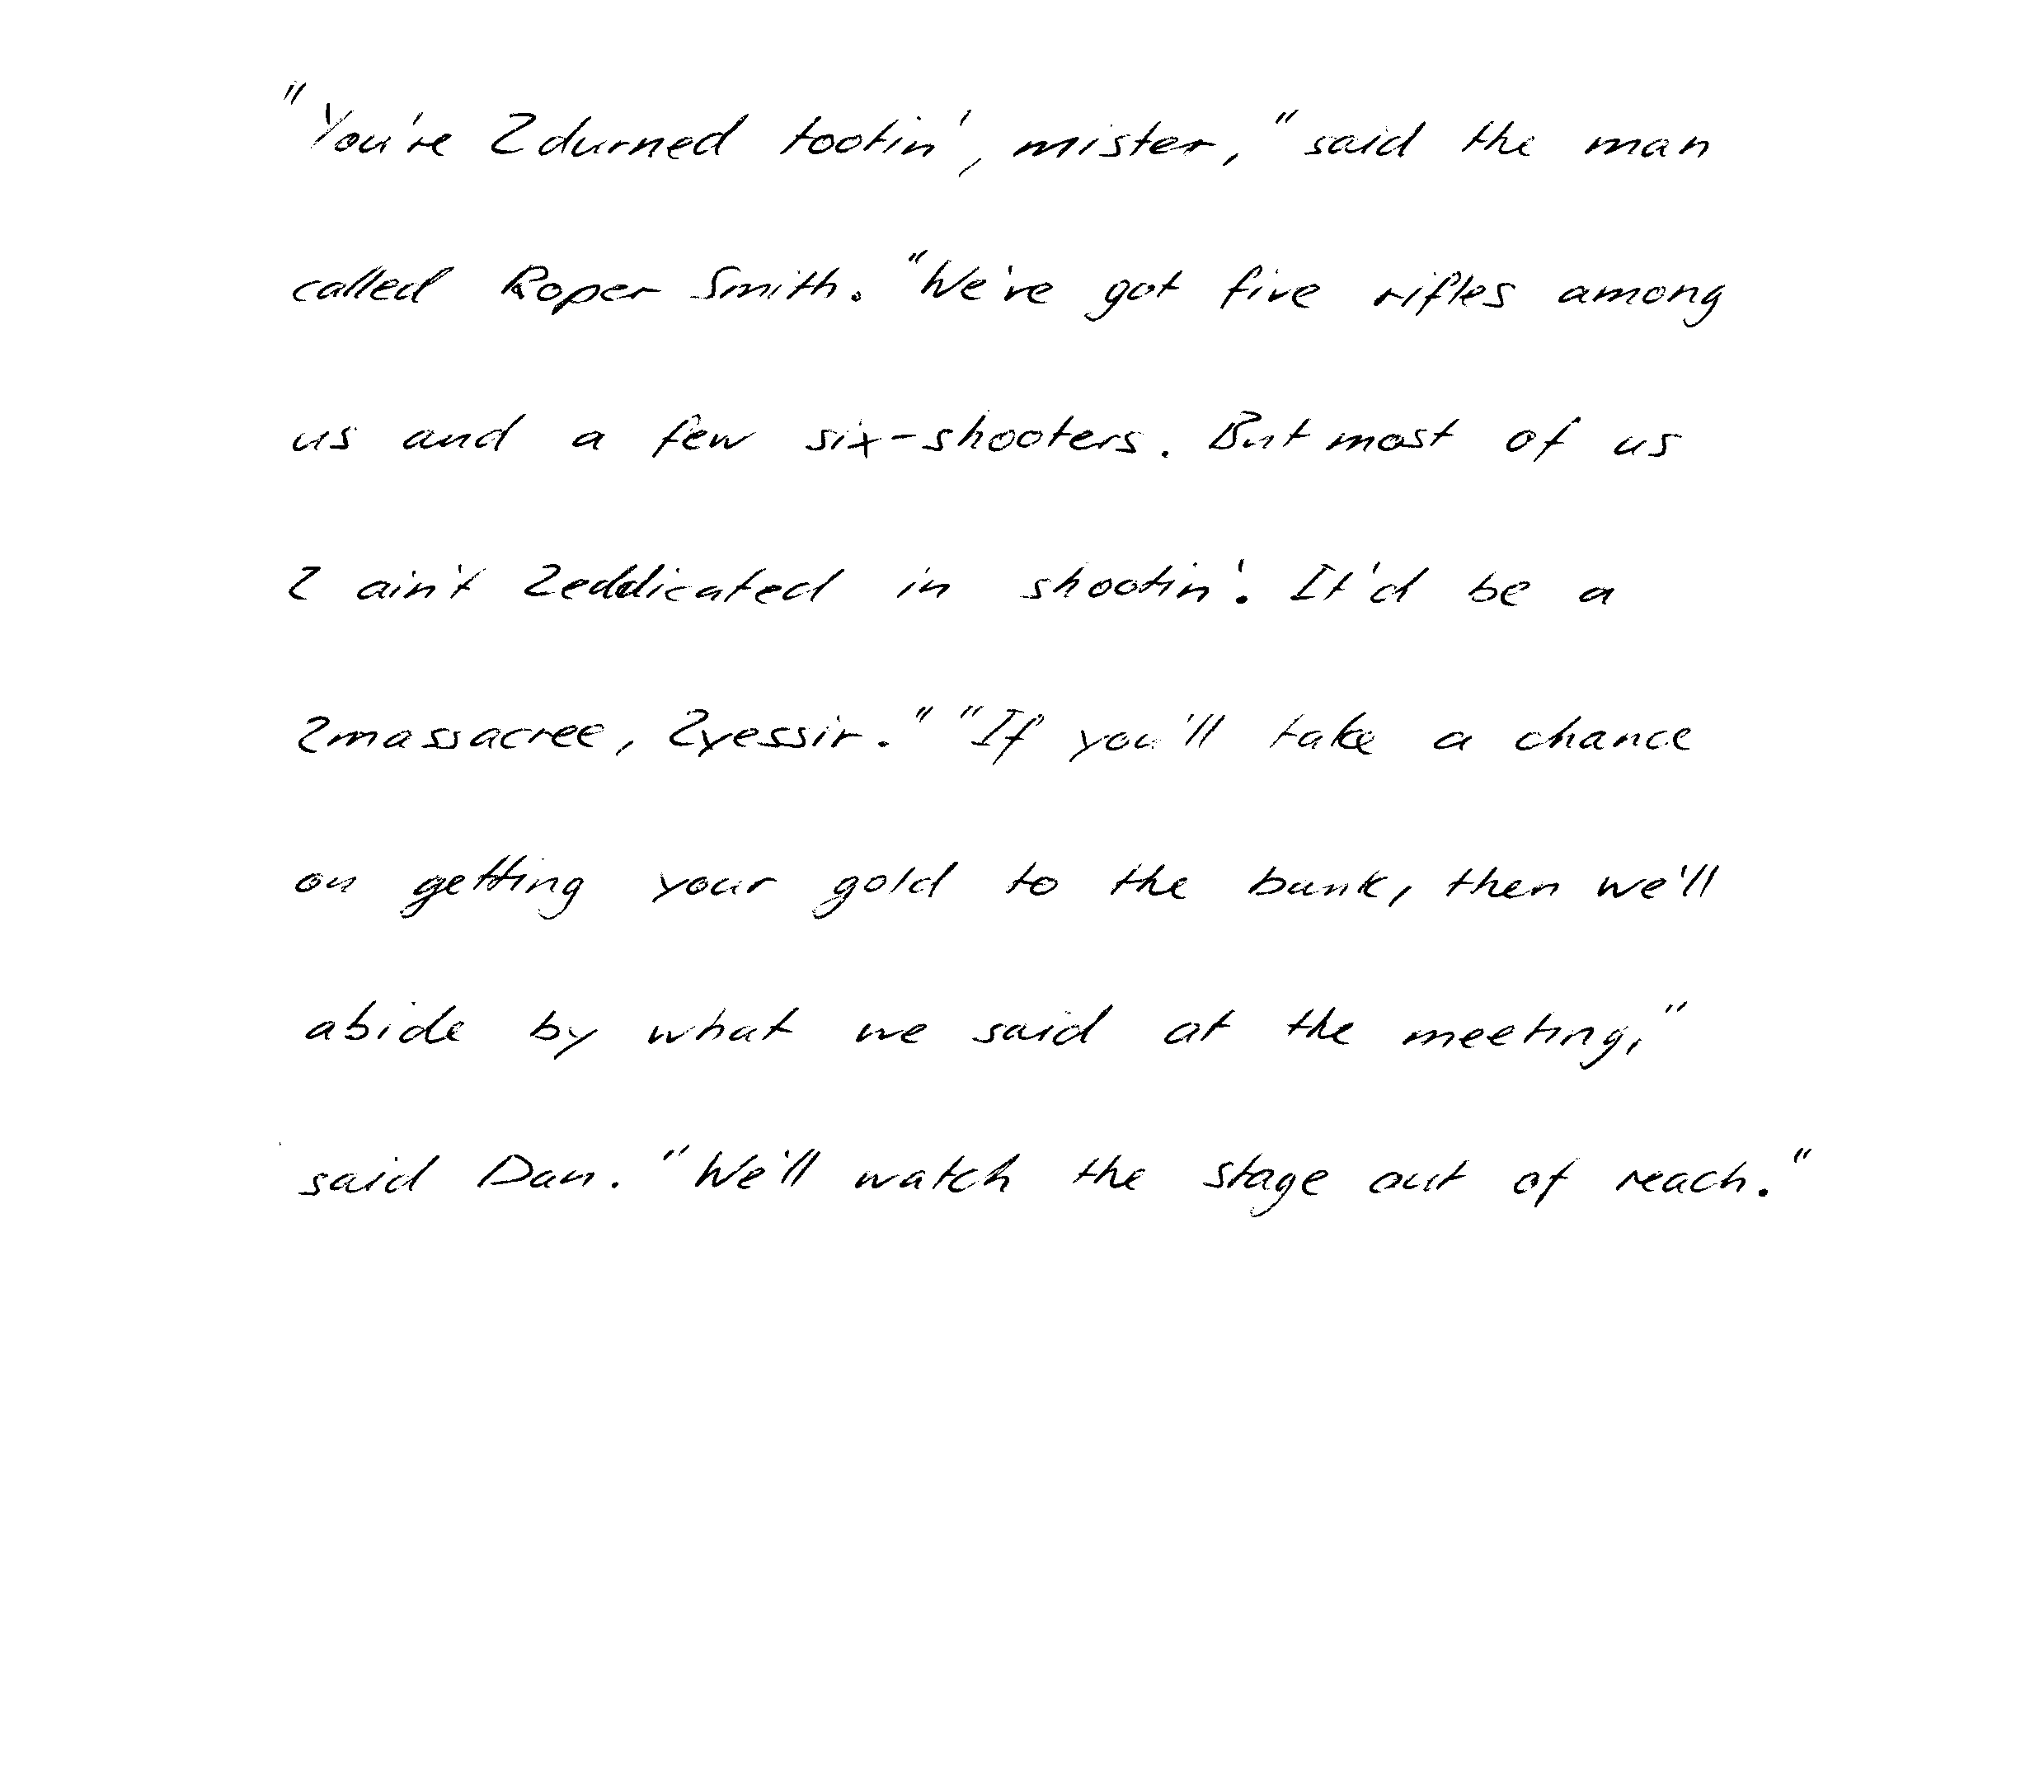 "You're 2durned tootin', mister," said the man
called Roper Smith. "We've got five rifles among
us and a few six-shooters. But most of us
2 ain't 2eddicated in shootin'. It'd be a
2massacree, 2yessir." "If you'll take a chance
on getting your gold to the bank, then we'll
abide by what we said at the meeting,"
said Dan. "We'll watch the stage out of reach."